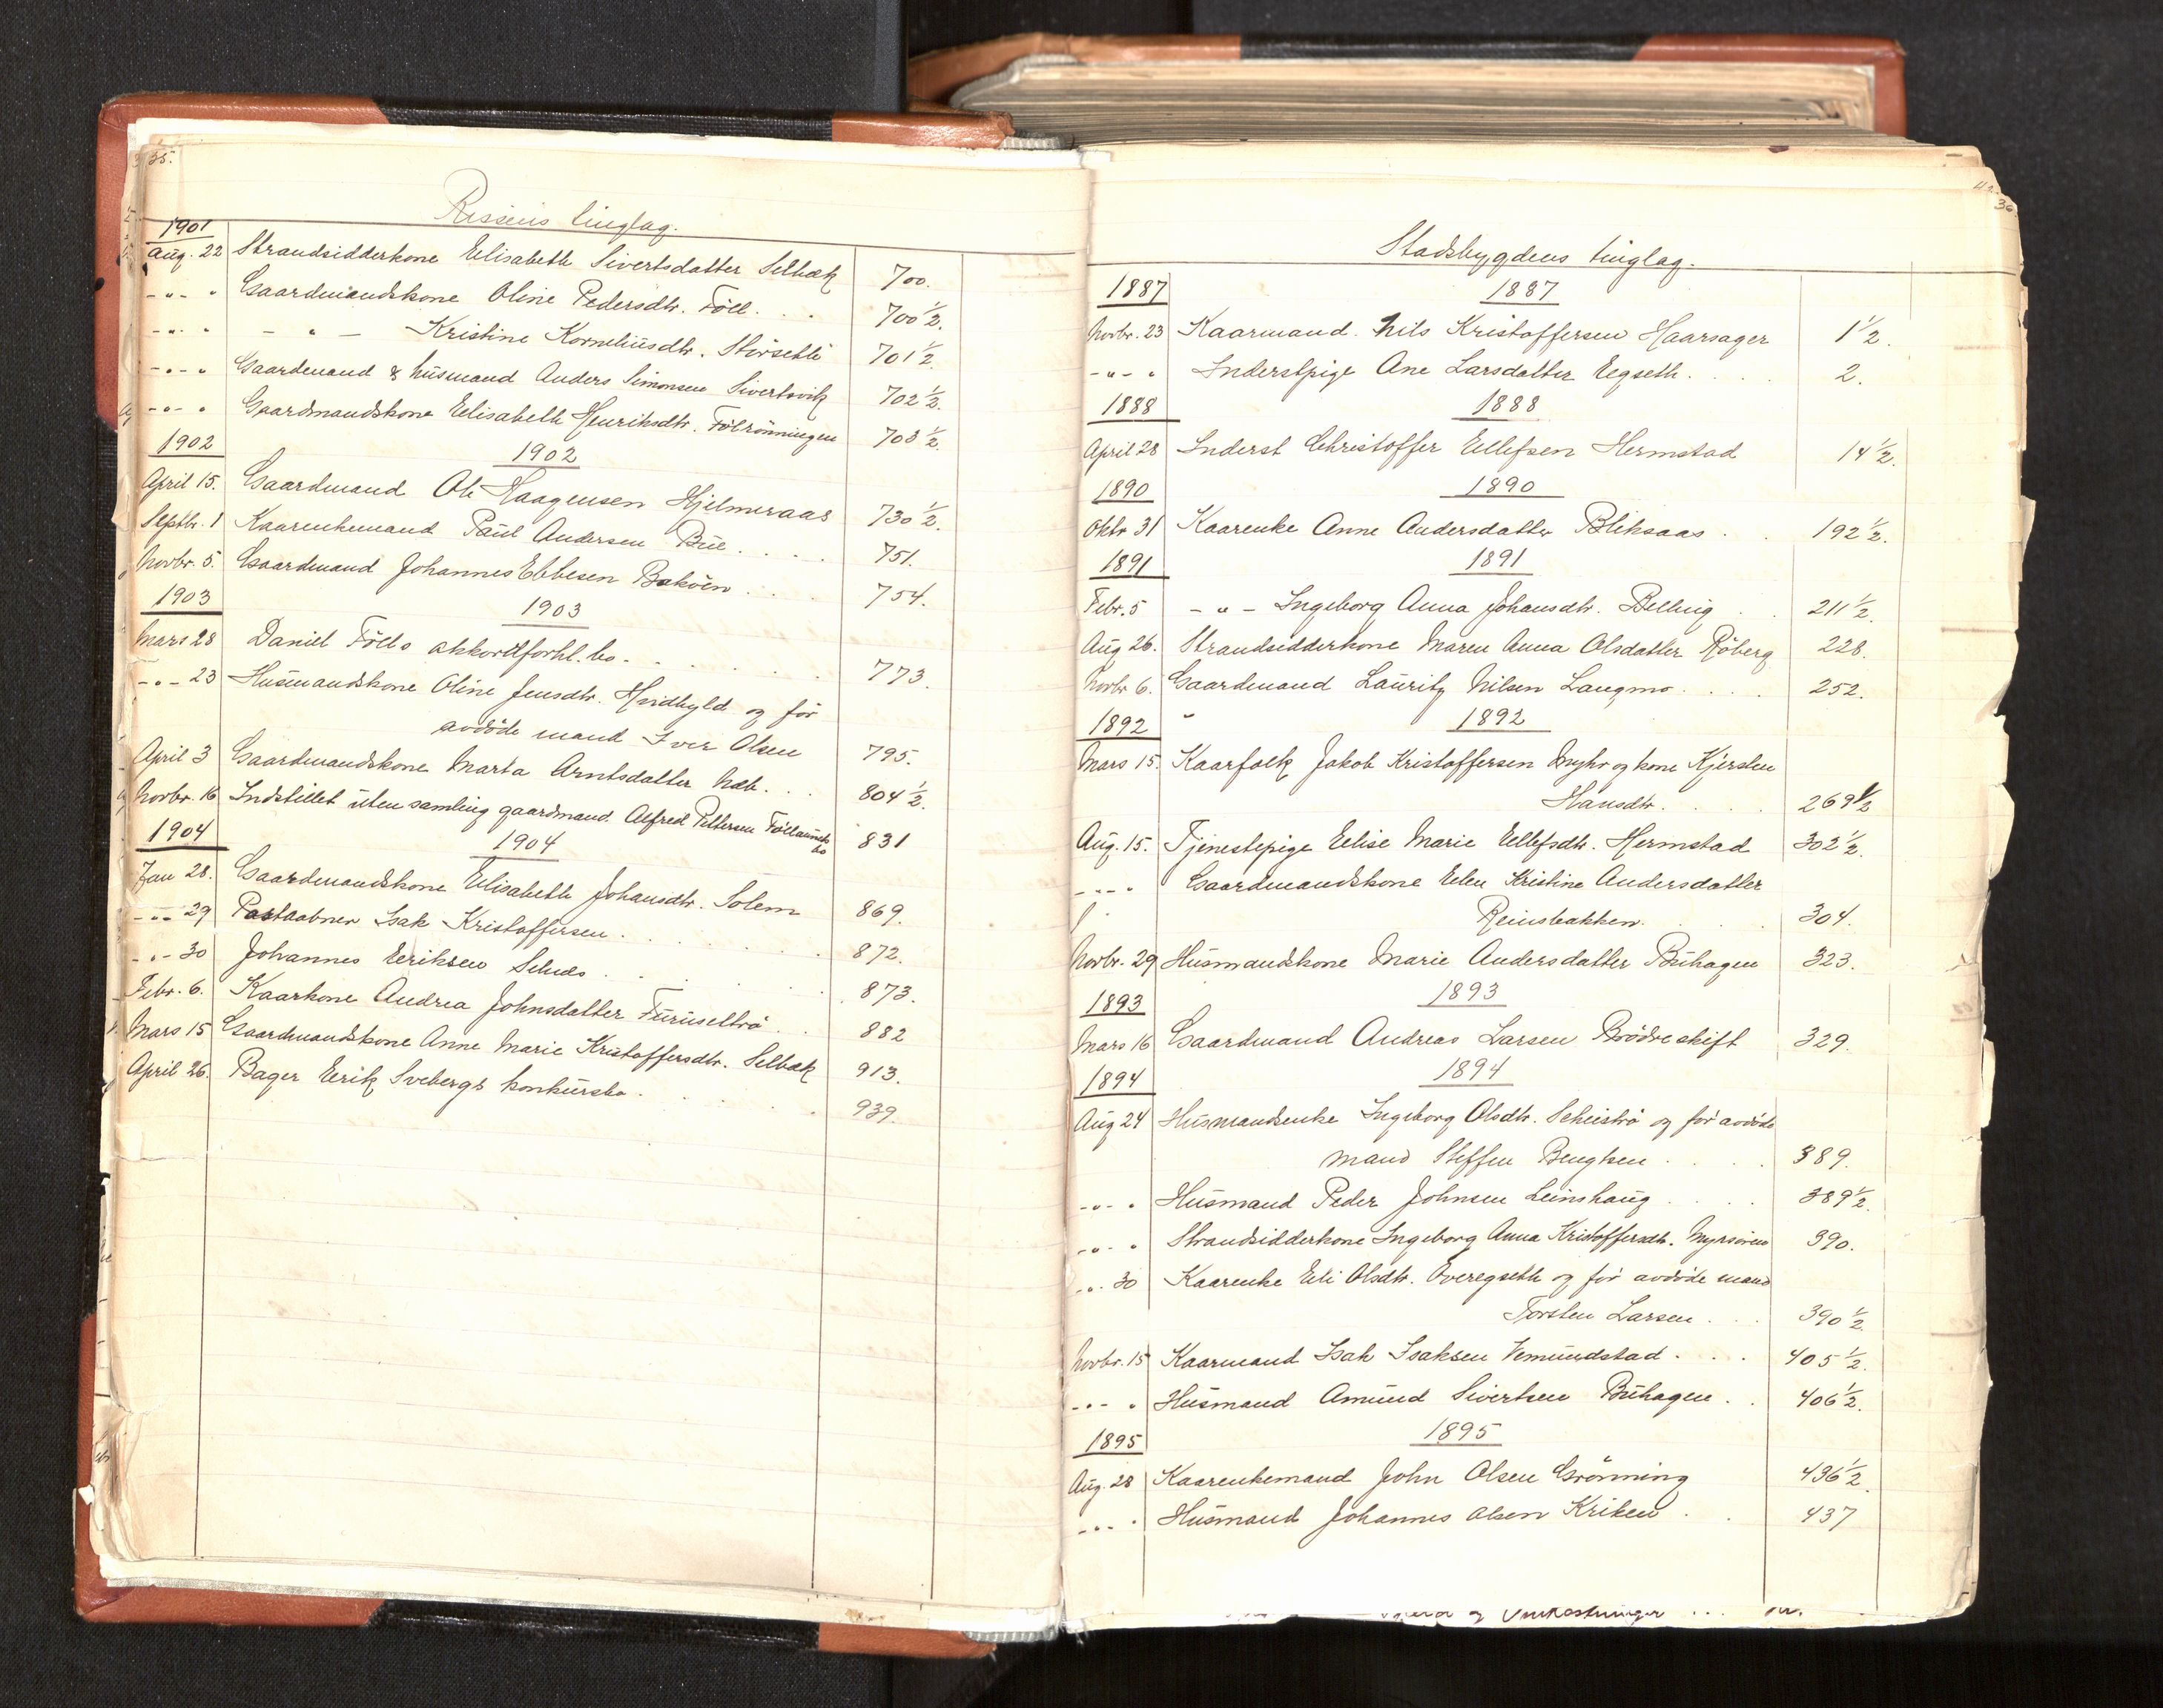 35.
Rissens tinglag.
1901
Aug. 22 Strandsidderkone Elisabeth Sivertsdatter Selbæk 700.
-"- " Gaardmandskone Oline Pedersdtr. Föll . . . 700½.
-"- " - " - Kristine Korneliusdtr. Störsetli 701½.
-"- " Gaardmand & husmand Anders Simonsen Sivertsvik 702½.
-"- " Gaardmandskone Elisabeth Henriksdtr. Fölrönningen 703½.
1902 1902
April 15. Gaardmand Ole Haagensen Hjelmeraas 730½.
Septbr. 1 Kaarenkemand Paul Andersen Bue . . . . 751.
Novbr. 5. Gaardmand Johannes Ebbesen Baköen . . . 754.
1903 1903
Mars 28 Daniel Fölls akkordforhl. bo. . . . . . . 773.
-"- 23 Husmandskone Oline Jensdtr. Hvidbyld og for
avdöde mand Iver Olsen 795.
April 3 Gaardmandskone Marta Arntsdatter Næb . . . 804½.
Novbr. 16 Indstillet uten samling gaardmand Alfred Pettersen Föllaunets bo 831
1904 1904
Jan 28. Gaardmandskone Elisabeth Johansdtr. Solem 869.
-"- 29 Postaabner Isak Kristoffersen . . . . . . 872.
-"- 30 Johannes Eriksen . . . . . . 873.
Febr. 6. Kaarkone Andrea Johnsdatter Furusettrö . . 882
Mars 15 Gaardmandskone Anne Marie Kristoffersdtr. Selbæk 913.
April 26. Bager Erik Svebergs konkursbo . . . . . 939.
36.
Stadsbygdens tinglag.
1887 1887
Novbr. 23 Kaarmand. Nils Kristoffersen Haarsager 1½.
-"- " Inderstpige Ane Larsdatter Eegseth . . . . 2.
1888 1888
April 28 Inderst Christoffer Ellefsen Hermstad 14½.
1890 1890
Oktbr 31 Kaarenke Anne Andersdatter Bliksaas . . 192½.
1891 1891
Febr. 5 - " - Ingeborg Anna Johansdtr. Belling . 211½.
Aug 26. Strandsidderkone Maren Anna Olsdatter Röberg 228.
Novbr 6. Gaardmand Lauritz Nilsen Langmo . . . . 252.
1892 " 1892
Mars 15. Kaarfolk Jakob Kristoffersen Myhr og kone Kjersten
Hansdtr. . . . . 269½
Aug. 15. Tjenestepige Elise Marie Ellefsdtr. Hermstad 302½.
-"- " Gaardmandskone Elen Kristine Andersdatter
Reinsbakken . . . 304.
Novbr. 29 Husmandskone Marie Andersdatter Buhagen 323.
1893 1893
Mars 16 Gaardmand Andreas Larsen Brödreskift 329.
1894 1894
Aug 24 Husmandsenke Ingeborg Olsdtr. og for avdöde
mand Steffen Bengtsen . . . . 389.
-"- " Husmand Peder Johnsen Leinshaug . . . . 389½.
-"- " Strandsidderkone Ingeborg Anna Kristoffersdtr. Myrsören 390.
-"- 30 Kaarenke Eli Olsdtr. Överegseth og for avdöde mand
Torsten Larsen . . . 390½.
Novbr. 15 Kaarmand Isak Isaksen Vemundstad . . . . 405½.
-"- " Husmand Amund Sivertsen Buhagen . . 406½.
1895 1895
Aug. 28 Kaarenkemand John Olsen Grönning 436½.
-"- " Husmand Johannes Olsen Kriken . . 437
og Omkostninger . . .